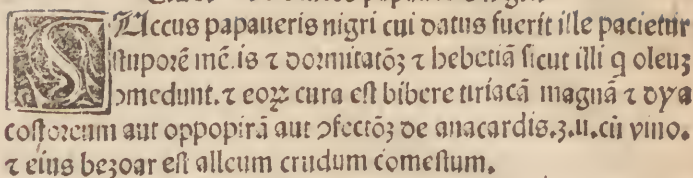 SUccus papaueris nigri cui datus fuerit ille pacietur
stuporē mē.is ⁊ dormitatōꝫ ⁊ hebetiā sicut illi q oleuꝫ
ↄmedunt. ⁊ eoꝝ cura est bibere tiriacā magnā ⁊ dya
costoreum aut oppopirā aut ↄfectōꝫ de anacardis.ʒ.ii.cū vino.
⁊ eius beʒoar est alleum crudum comestum.